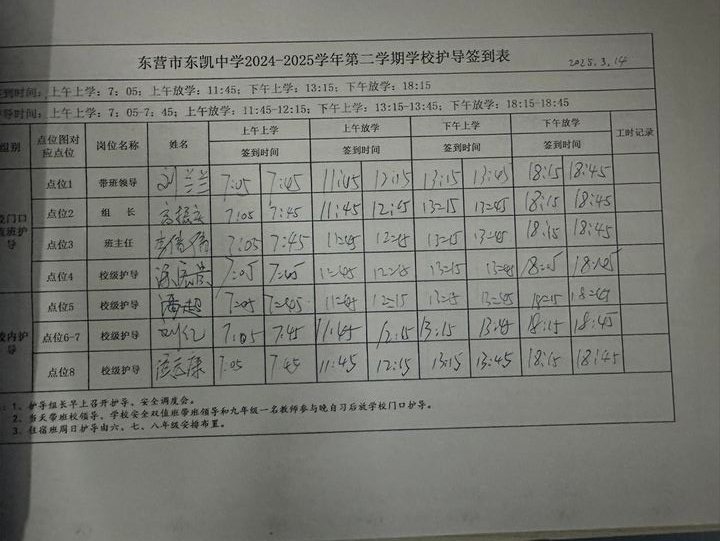 东营市东凯中学2024-2025学年第二学期学校护导签到表
2025.3.14
到时间：上午上学：7：05；上午放学：11:45；下午上学：13:15；下午放学：18:15
导时间：上午上学：7：05-7：45；上午放学：11:45-12:15；下午上学：13:15-13:45；下午放学：18:15-18:45
组别 点位图对应点位 岗位名称 姓名 上午上学 上午放学 下午上学 下午放学 工时记录
签到时间 签到时间 签到时间 签到时间
门口值班护导
点位1 带班领导 刘兰兰 7:05 7:45 11:45 12:15 13:15 13:45 18:15 18:45
点位2 组 长 7:05 7:45 11:45 12:45 13:15 13:45 18:15 18:45
点位3 班主任 7:05 7:45 11:45 12:15 13:15 13:45 18:15 18:45
点位4 校级护导 7:05 7:45 11:45 12:15 13:15 13:45 18:15 18:45
校内护导
点位5 校级护导 潘超 7:05 7:45 11:45 12:15 13:15 13:45 18:15 18:45
点位6-7 校级护导 7:05 7:45 11:45 12:15 13:15 13:45 18:15 18:45
点位8 校级护导 7:05 7:45 11:45 12:15 13:15 13:45 18:15 18:45
：1、护导组长早上召开护导、安全调度会。
2、当天带班校领导、学校安全双值班带班领导和九年级一名教师参与晚自习后放学校门口护导。
3、住宿班周日护导由六、七、八年级安排布置。